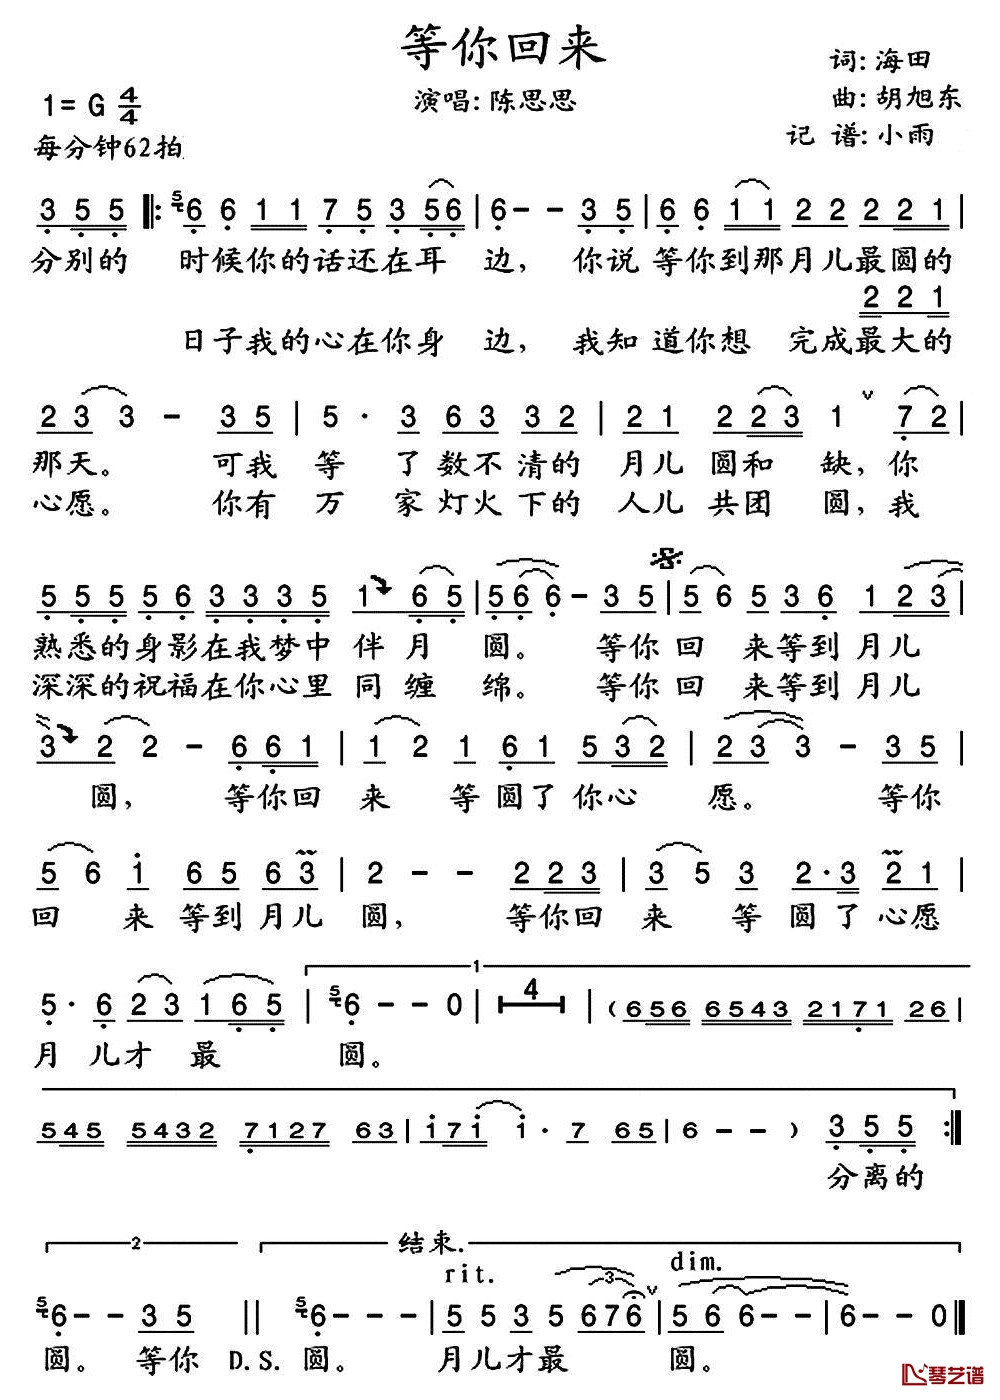 等你回来
词: 海田
1= G 4/4 演唱: 陈思思 曲: 胡旭东
每分钟62拍 记 谱: 小雨
3 5 5 ‖: 5 6 6 1 1 7 5 3 5 6 | 6 - - 3 5 | 6 6 1 1 2 2 2 2 1 |
分别的 时候你的话还在耳 边, 你说 等你到那月儿最圆的
2 2 1
日子我的心在你身 边, 我知 道你想 完成最大的
2 3 3 - 3 5 | 5 · 3 6 3 3 2 | 2 1 2 2 3 1 ∨ 7 2
那天。 可我 等 了数不清的 月儿 圆和 缺, 你
心愿。 你有 万 家灯火下的 人儿 共团 圆, 我
5 5 5 5 6 3 3 3 5 1 6 5 | 5 6 6 - 3 5 | 5 6 5 3 6 1 2 3 |
熟悉的身影在我梦中 伴 月 圆。 等你 回 来等到月儿
深深的祝福在你心里 同 缠 绵。 等你 回 来等到月儿
3 2 2 - 6 6 1 | 1 2 1 6 1 5 3 2 | 2 3 3 - 3 5
圆, 等你回 来 等 圆了你心 愿。 等你
5 6 1 6 5 6 3 | 2 - - 2 2 3 | 3 5 3 2 · 3 2 1 |
回 来 等到月儿 圆, 等你回 来 等 圆了心愿
1
5 · 6 2 3 1 6 5 | 5 6 - - 0 | 4 | ( 6 5 6 6 5 4 3 2 1 7 1 2 6 |
月 儿才 最 圆。
5 4 5 5 4 3 2 7 1 2 7 6 3 | 1 7 1 1 · 7 6 5 | 6 - - ) 3 5 5 :‖
分离的
2 结束.
rit. dim.
5 6 - - 3 5 ‖ 5 6 - - | 5 5 3 5 6 7 6 3 ∨ | 5 6 6 - - | 6 - 0 ‖
圆。 等你 D.S. 圆。 月儿才最 圆。
琴艺谱